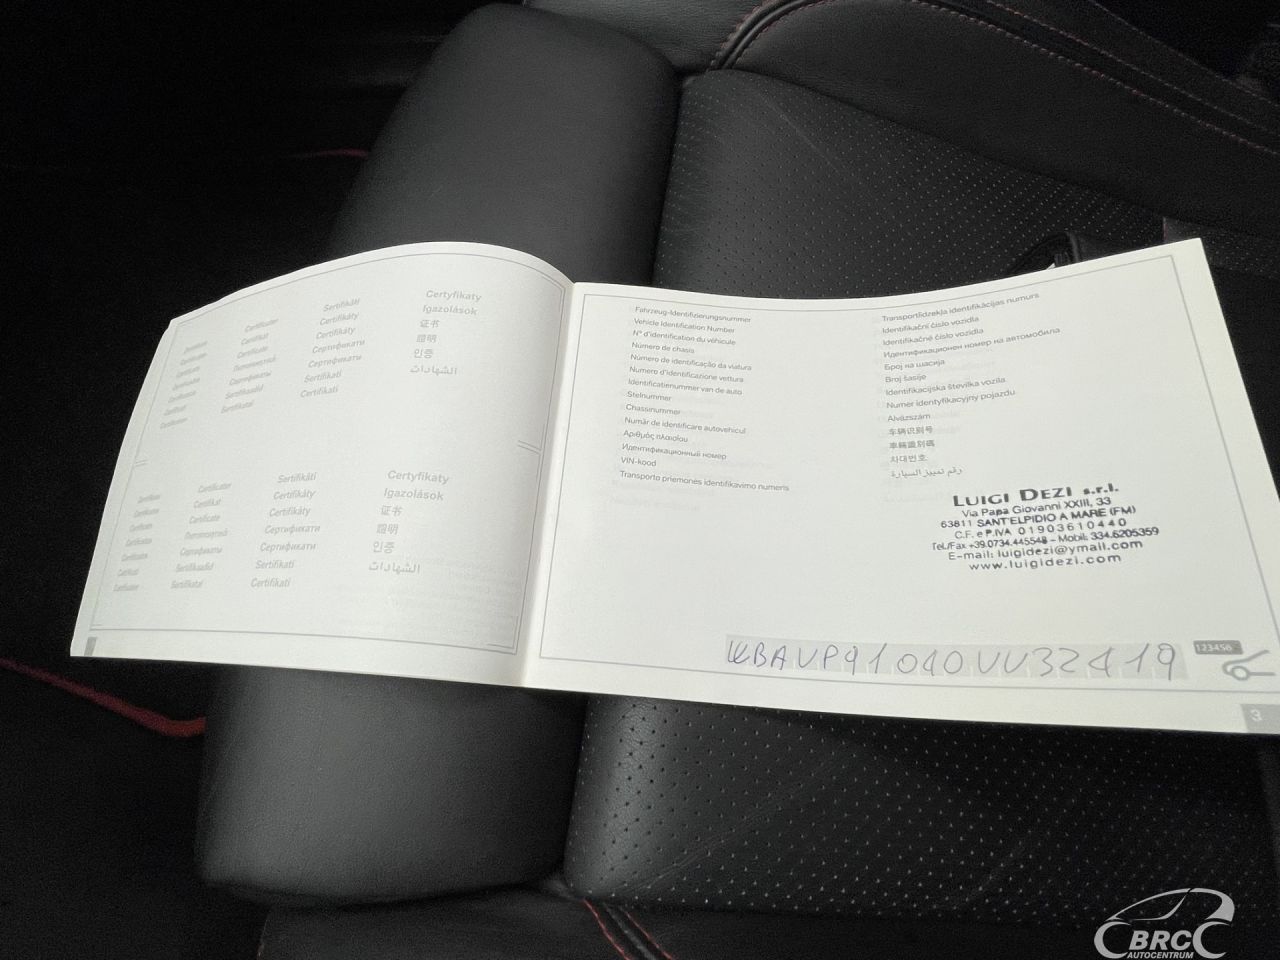 Certyfikaty
Igazolások
证书
證明
인증
الشهادات
Sertifikāti
Certifikáty
Certifikáty
Сертификати
Сертификати
Sertifikati
Certifikati
Certyfikaty
Igazolások
证书
證明
인증
الشهادات
Sertifikāti
Certifikáty
Certifikáty
Сертификати
Сертификати
Sertifikati
Certifikati
Fahrzeug-Identifizierungsnummer
Vehicle Identification Number
N° d'identification du véhicule
Número de chasis
Número de identificação da viatura
Numero d'identificazione vettura
Identificatienummer van de auto
Stelnummer
Chassinummer
Număr de identificare autovehicul
Αριθμός πλαισίου
Идентификационный номер
VIN-kood
Transporto priemonės identifikavimo numeris
Transportlīdzekļa identifikācijas numurs
Identifikační číslo vozidla
Identifikačné číslo vozidla
Идентификационен номер на автомобила
Број на шасија
Broj šasije
Identifikacijska številka vozila
Numer identyfikacyjny pojazdu
Alvázszám
车辆识别号
車輛識別碼
차대번호
رقم تمييز السيارة
LUIGI DEZI s.r.l.
Via Papa Giovanni XXIII, 33
63811 SANT'ELPIDIO A MARE (FM)
C.F. e P.IVA 01903610440
Tel./Fax +39.0734.445548 - Mobil: 334.6205359
E-mail: luigidezi@ymail.com
www.luigidezi.com
WBAVP91040VV32419
123456
3
BRC
AUTOCENTRUM